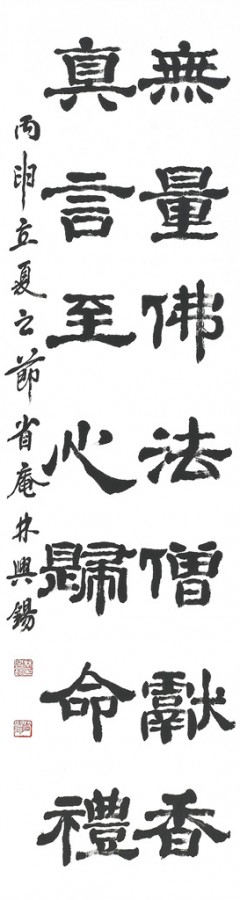 無量佛法僧獻香
真言至心歸命禮
丙申立夏之節省庵林興錫